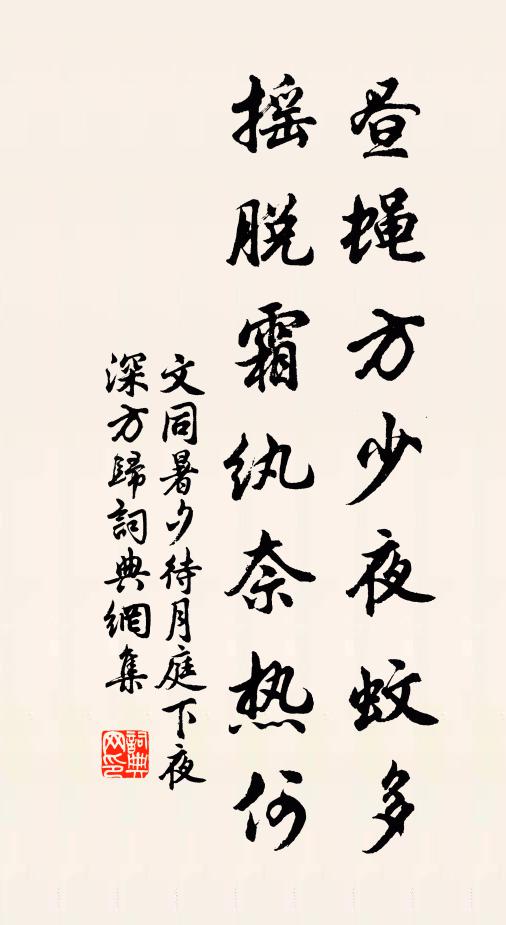 昼蝇方少夜蚊多
摇脱霜纨奈热何
文同暑夕待月庭下夜
深方歸詞典網集
詞典
网印